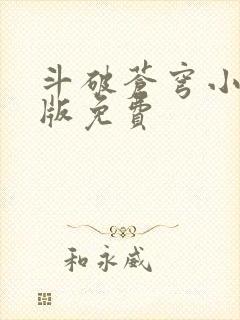 斗破苍穹小
版免費
和永威